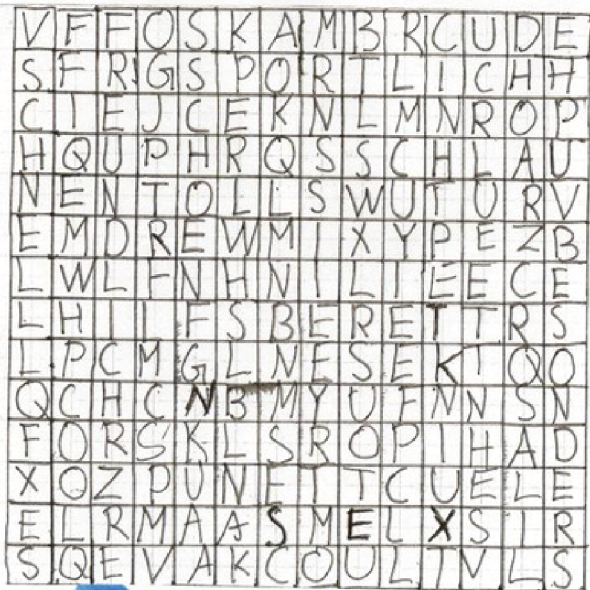 V F F O S K A M B R C U D E
S F R G S P O R T L I C H H
C I E J C E K N L M N R O P
H Q U P H R Q S S C H L A U
N E N T O L L S W U T U R V
E M D R E W M I X Y P E Z B
L W L F N H N I L I E E C E
L H I I F S B E R E T T R S
L P C M G L N F S E K T Q O
Q C H C N B M Y U F N N S N
F O R S K L S R O P I H A D
X O Z P U N E T T C U E L E
E L R M A A S M E L X S I R
S Q E V A K C O U L T V L S